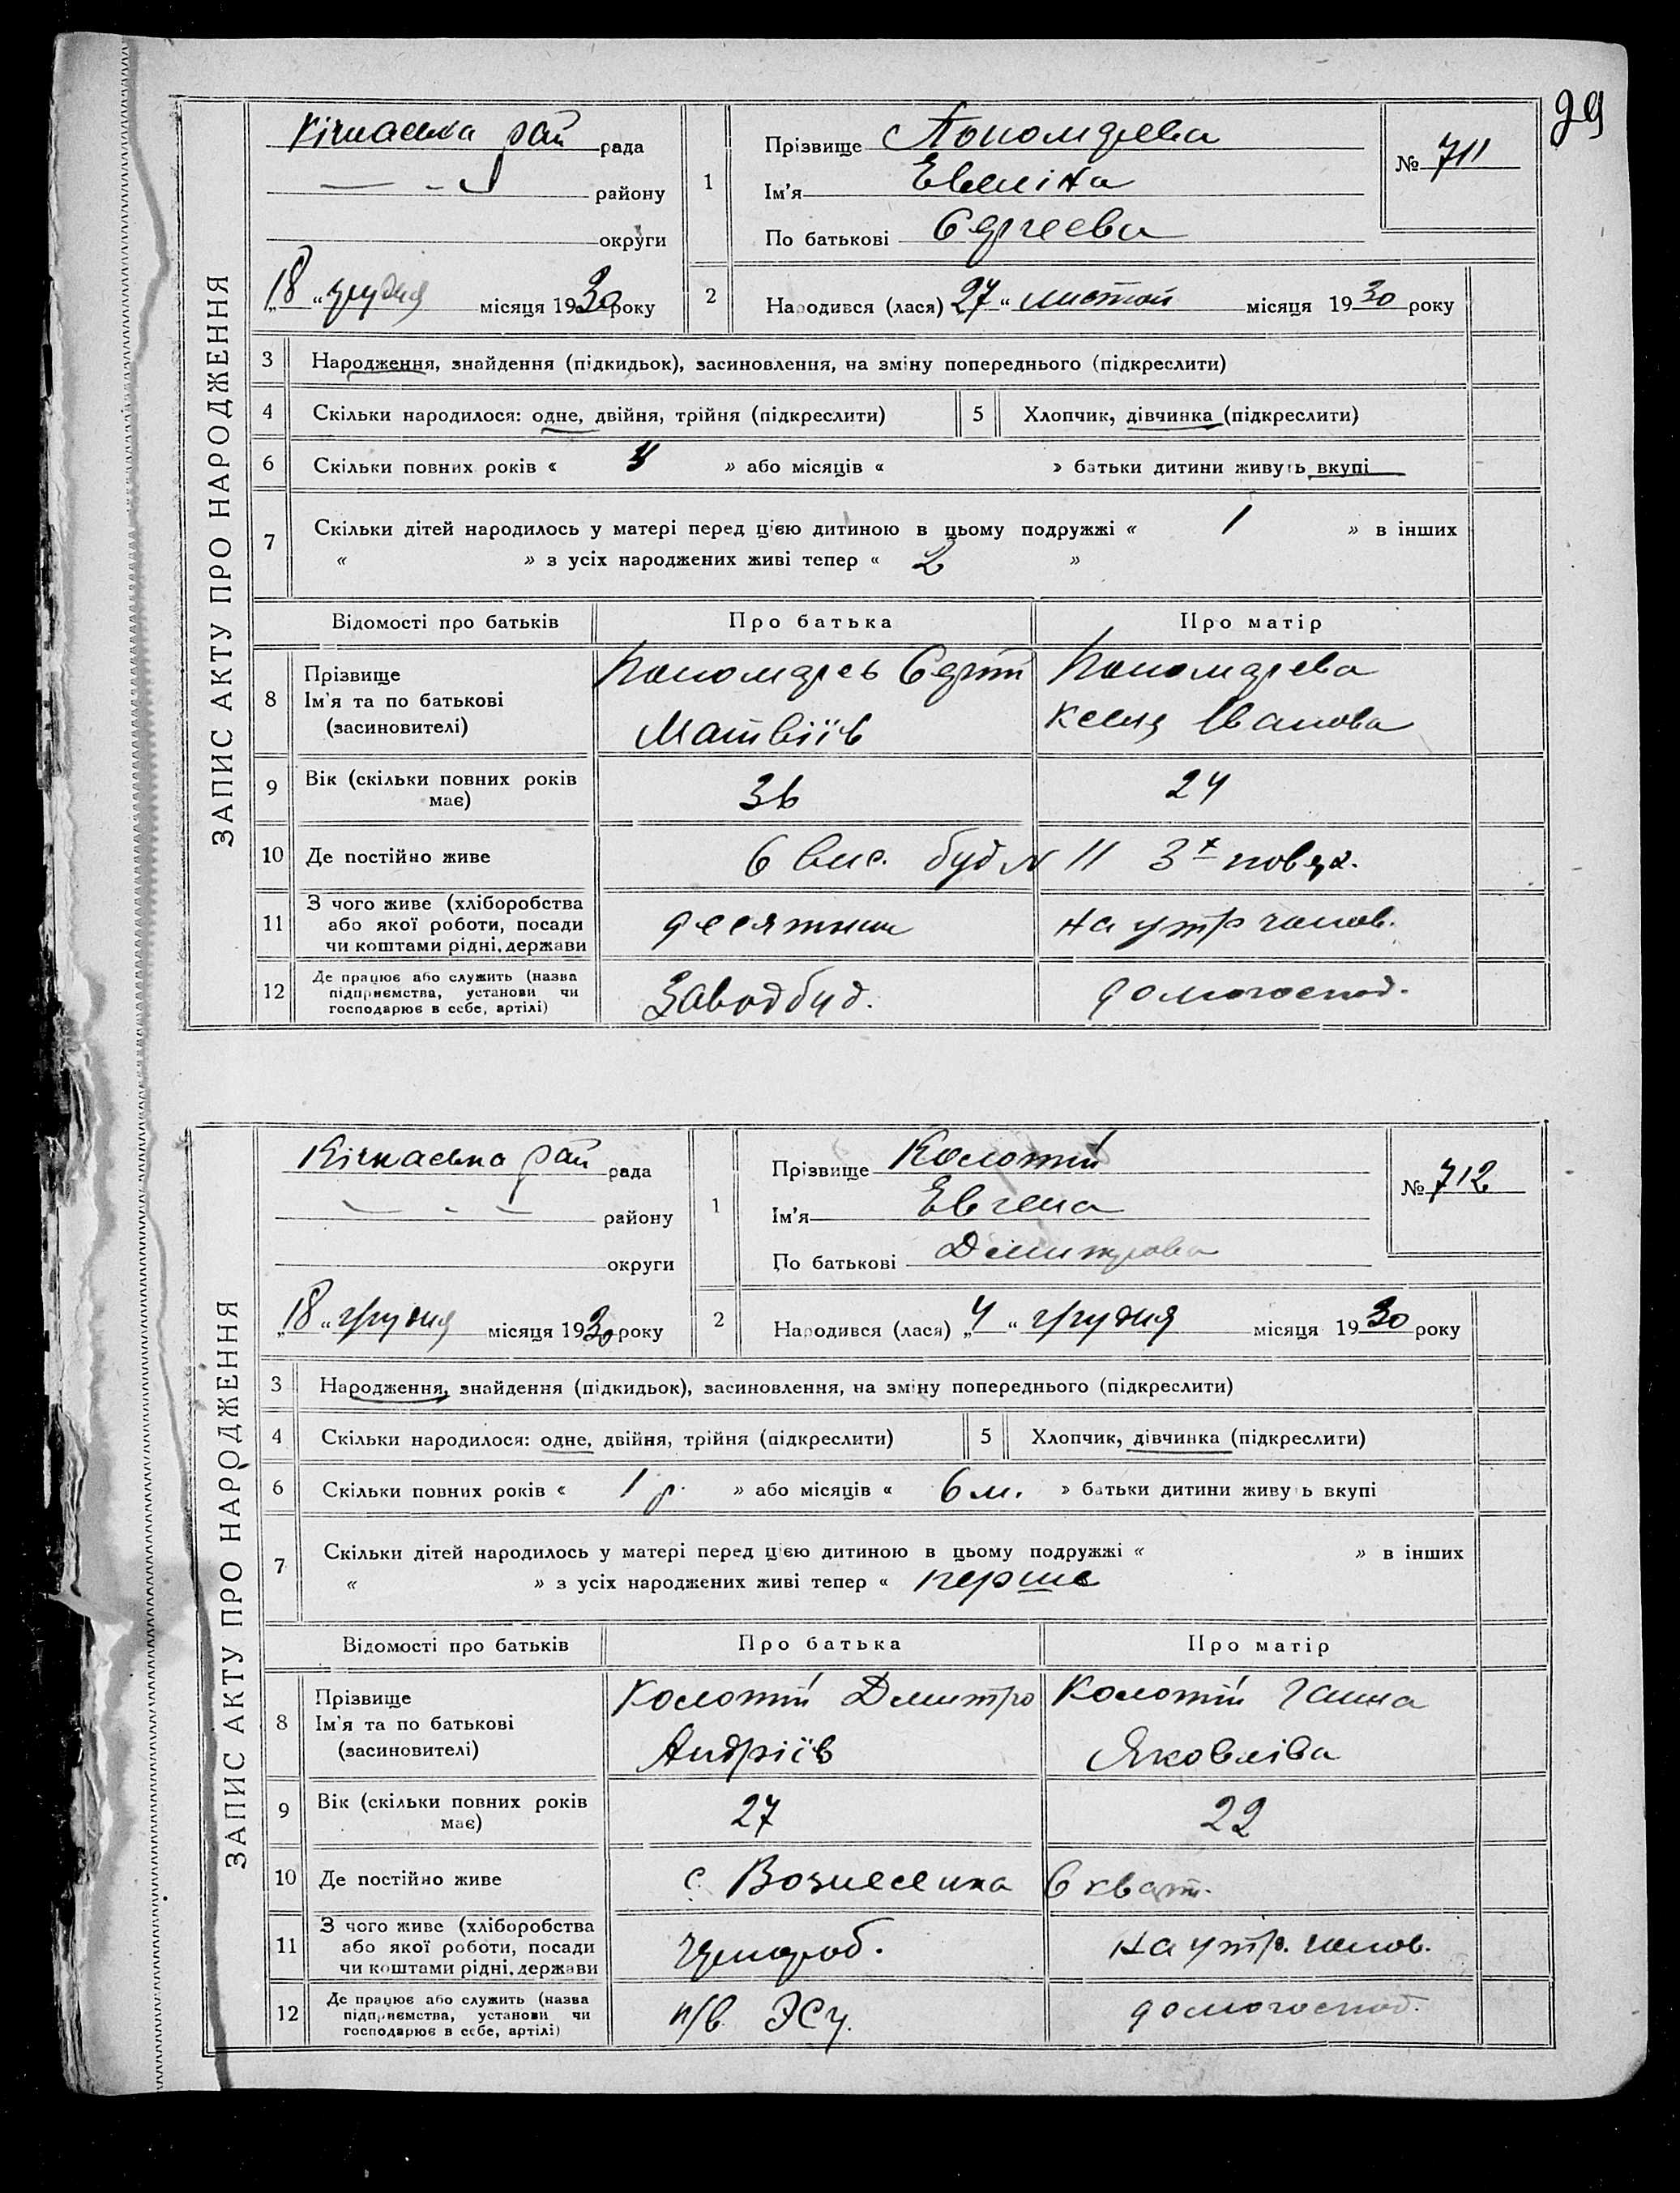 29
ЗАПИС АКТУ ПРО НАРОДЖЕННЯ
Кічкаська рай рада
району
округи
„18“ грудня місяця 1930 року
1 Прізвище Пономарева
Ім'я Евеліна
По батькові Сергеева
№ 711
2 Народився (лася) 27 “ листоп місяця 1930 року
3 Народження, знайдення (підкидьок), засиновлення, на зміну попереднього (підкреслити)
4 Скільки народилося: одне, двійня, трійня (підкреслити) 5 Хлопчик, дівчинка (підкреслити)
6 Скільки повних років « » або місяців « » батьки дитини живуть вкупі
7 Скільки дітей народилось у матері перед цією дитиною в цьому подружжі « 1 » в інших
« » з усіх народжених живі тепер « 2 »
Відомості про батьків Про батька Про матір
8 Прізвище Ім'я та по батькові (засиновителі) Пономарев Сергій Пономарева
Матвіїв Ксеня Іванова
9 Вік (скільки повних років має) 36 24
10 Де постійно живе 6 вис. буд № 11 3х поверх.
11 З чого живе (хліборобства або якої роботи, посади чи коштами рідні, держави десятник на утр чолов.
12 Де працює або служить (назва підприємства, установи чи господарює в себе, артілі) Заводбуд. домогоспод.
ЗАПИС АКТУ ПРО НАРОДЖЕННЯ
Кічкаська рай рада
району
округи
„18“ грудня місяця 1930 року
1 Прізвище Колотій
Ім'я Евгена
По батькові Дмитрова
№ 712
2 Народився (лася) „4“ грудня місяця 1930 року
3 Народження, знайдення (підкидьок), засиновлення, на зміну попереднього (підкреслити)
4 Скільки народилося: одне, двійня, трійня (підкреслити) 5 Хлопчик, дівчинка (підкреслити)
6 Скільки повних років « 1 р. » або місяців « 6 м. » батьки дитини живуть вкупі
7 Скільки дітей народилось у матері перед цією дитиною в цьому подружжі « » в інших
« » з усіх народжених живі тепер « перше
Відомості про батьків Про батька Про матір
8 Прізвище Ім'я та по батькові (засиновителі) Колотій Дмитро Колотій Ганна
Андріїв Яковліва
9 Вік (скільки повних років має) 27 22
10 Де постійно живе с. Вознесенка 6 кварт.
11 З чого живе (хліборобства або якої роботи, посади чи коштами рідні, держави чорнороб. на утр. чолов.
12 Де працює або служить (назва підприємства, установи чи господарює в себе, артілі) п/в. домогоспод.